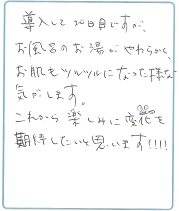 導入して20日目ですが、
お風呂のお湯がやわらかく、
お肌もツルツルになった様な
気がします。
これから楽しみに変化を
期待したいと思います!!!!